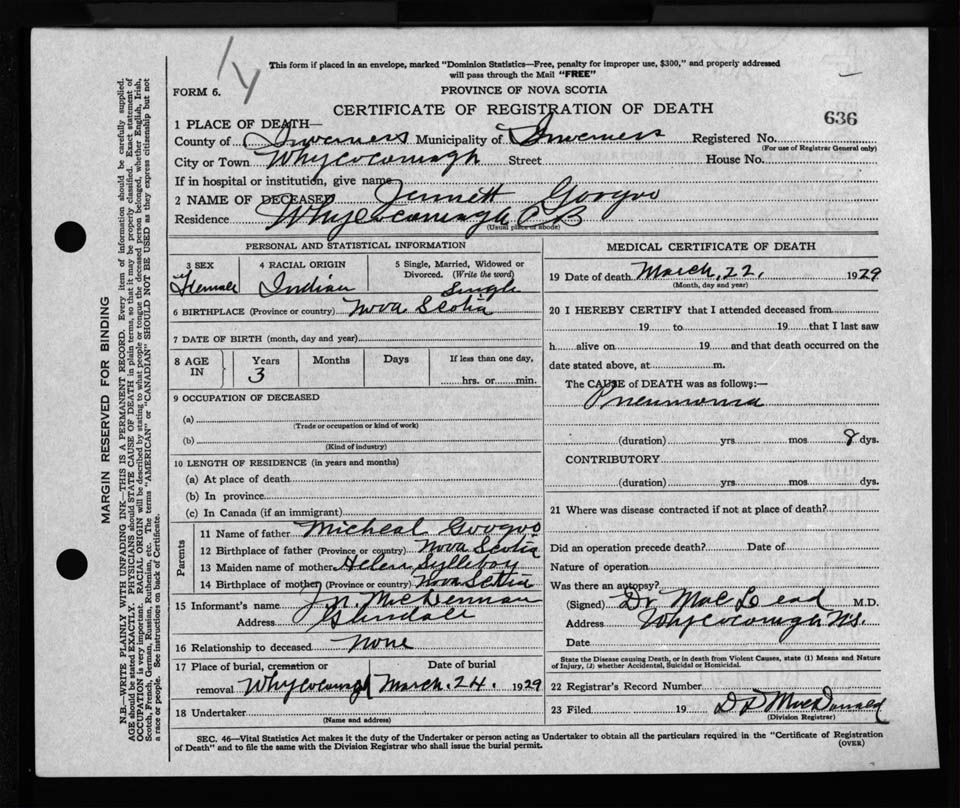 This form if placed in an envelope, marked "Dominion Statistics—Free, penalty for improper use, $300," and properly addressed
will pass through the Mail "FREE"
FORM 6.
PROVINCE OF NOVA SCOTIA
CERTIFICATE OF REGISTRATION OF DEATH
636
1 PLACE OF DEATH—
County of Inverness Municipality of Inverness Registered No.
(For use of Registrar General only)
City or Town Whycocomagh Street House No.
If in hospital or institution, give name
2 NAME OF DECEASED Jennett Googoo
Residence Whycocomagh C B
(Usual place of abode)
PERSONAL AND STATISTICAL INFORMATION
3 SEX 4 RACIAL ORIGIN 5 Single, Married, Widowed or
Divorced. (Write the word)
Female Indian Single
6 BIRTHPLACE (Province or country) Nova Scotia
7 DATE OF BIRTH (month, day and year)
8 AGE IN Years Months Days If less than one day,
3 hrs. or min.
9 OCCUPATION OF DECEASED
(a)
(Trade or occupation or kind of work)
(b)
(Kind of industry)
10 LENGTH OF RESIDENCE (in years and months)
(a) At place of death
(b) In province
(c) In Canada (if an immigrant)
Parents
11 Name of father Micheal Googoo
12 Birthplace of father (Province or country) Nova Scotia
13 Maiden name of mother Helen Sylleboy
14 Birthplace of mother (Province or country) Nova Scotia
15 Informant's name Jn. MacLennan
Address Glendale
16 Relationship to deceased None
17 Place of burial, cremation or Date of burial
removal Whycocomagh March. 24. 1929
18 Undertaker
(Name and address)
MEDICAL CERTIFICATE OF DEATH
19 Date of death March, 22. 1929
(Month, day and year)
20 I HEREBY CERTIFY that I attended deceased from
19 to 19 that I last saw
h alive on 19 and that death occurred on the
date stated above, at m.
The CAUSE of DEATH was as follows:—
Pneumonia
(duration) yrs. mos 8 dys.
CONTRIBUTORY
(duration) yrs. mos. dys.
21 Where was disease contracted if not at place of death?
Did an operation precede death? Date of
Nature of operation
Was there an autopsy?
(Signed) Dr MacLeod M.D.
Address Whycocomagh N.S.
Date
State the Disease causing Death, or in death from Violent Causes, state (1) Means and Nature
of Injury, (2) whether Accidental, Suicidal or Homicidal.
22 Registrar's Record Number
23 Filed 19 D D MacDonald
(Division Registrar)
SEC. 46—Vital Statistics Act makes it the duty of the Undertaker or person acting as Undertaker to obtain all the particulars required in the "Certificate of Registration
of Death" and to file the same with the Division Registrar who shall issue the burial permit.
(OVER)
MARGIN RESERVED FOR BINDING
N.B.—WRITE PLAINLY WITH UNFADING INK—THIS IS A PERMANENT RECORD. Every item of information should be carefully supplied.
AGE should be stated EXACTLY. PHYSICIANS should STATE CAUSE OF DEATH in plain terms, so that it may be properly classified. Exact statement of
OCCUPATION is very important. RACIAL ORIGIN will be described by stating to what people or tongue the deceased person belonged, whether English, Irish,
Scotch, French, German, Russian, Ruthenian, etc. The terms "AMERICAN" or "CANADIAN" SHOULD NOT BE USED as they express citizenship but not
a race or people. See instructions on back of Certificate.